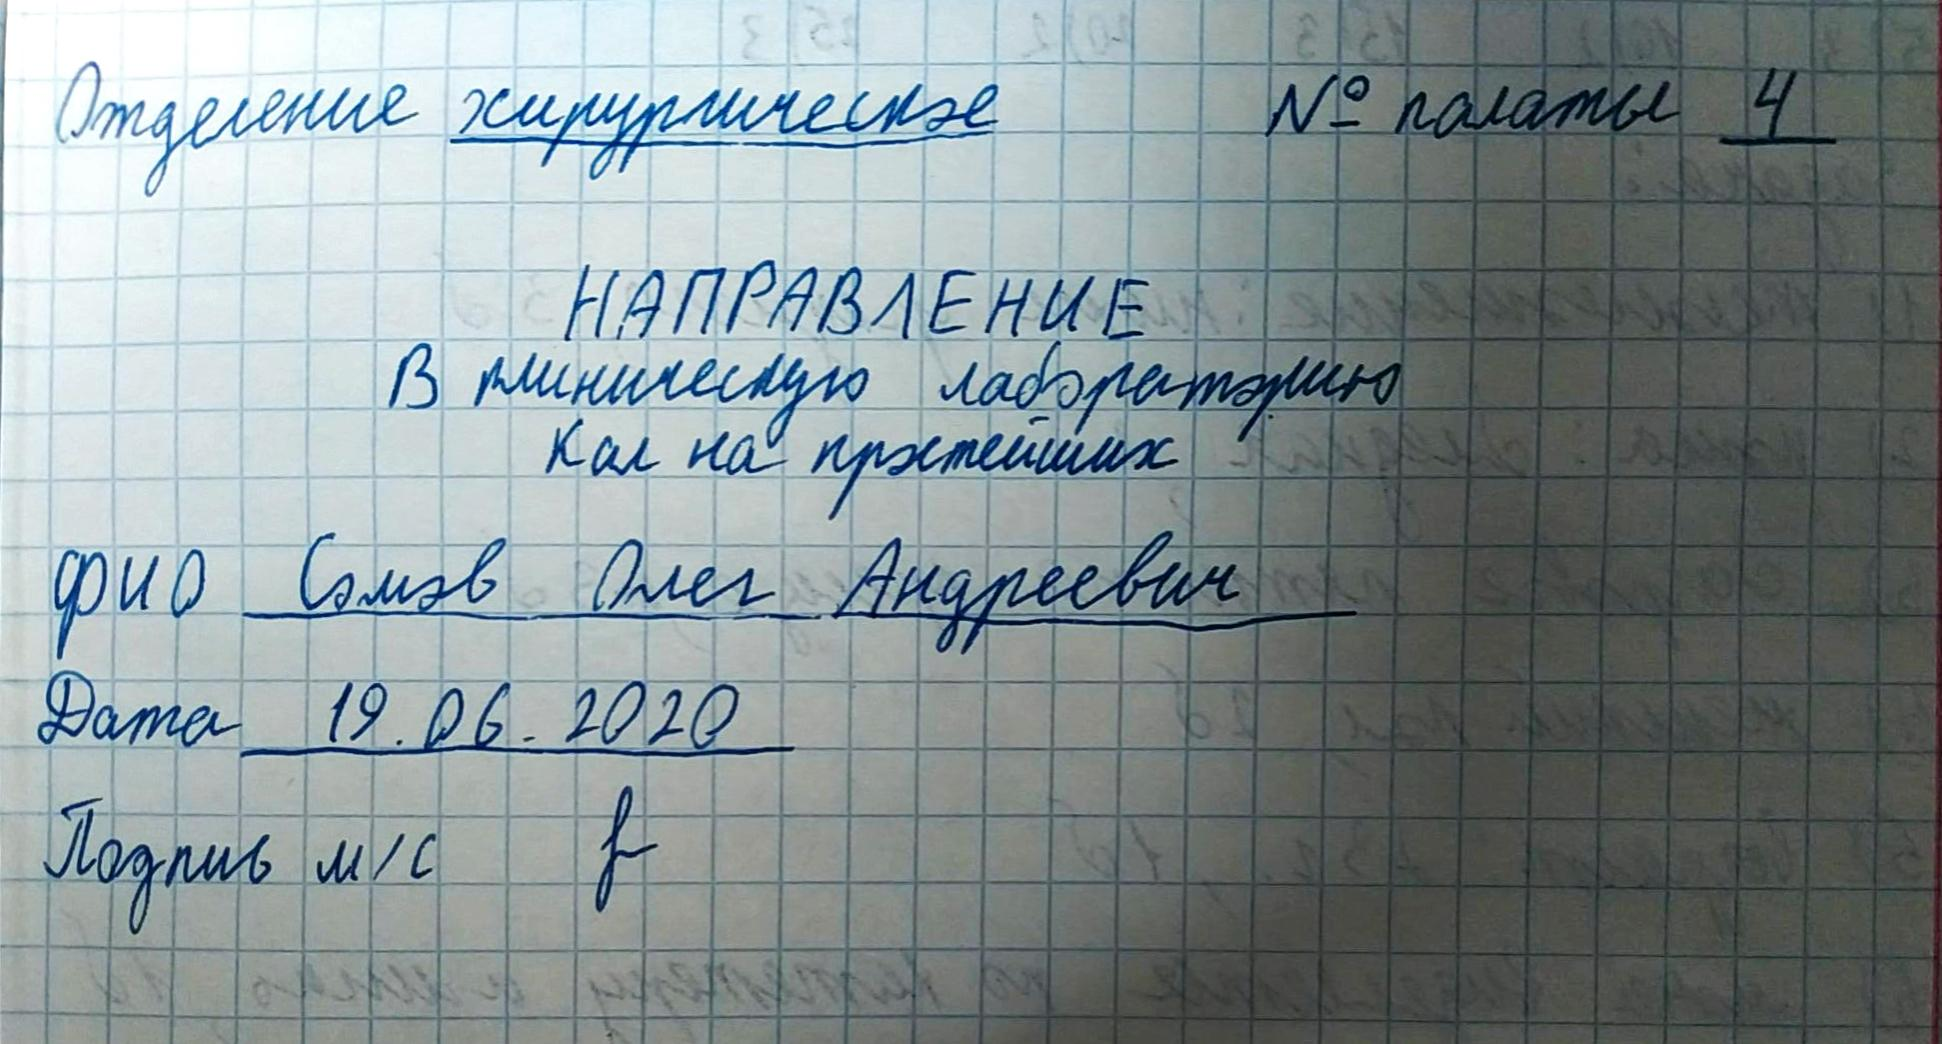 Отделение хирургическое № палаты 4
НАПРАВЛЕНИЕ
В клиническую лабораторию
Кал на простейших
ФИО Сомов Олег Андреевич
Дата 19.06.2020
Подпись м/с